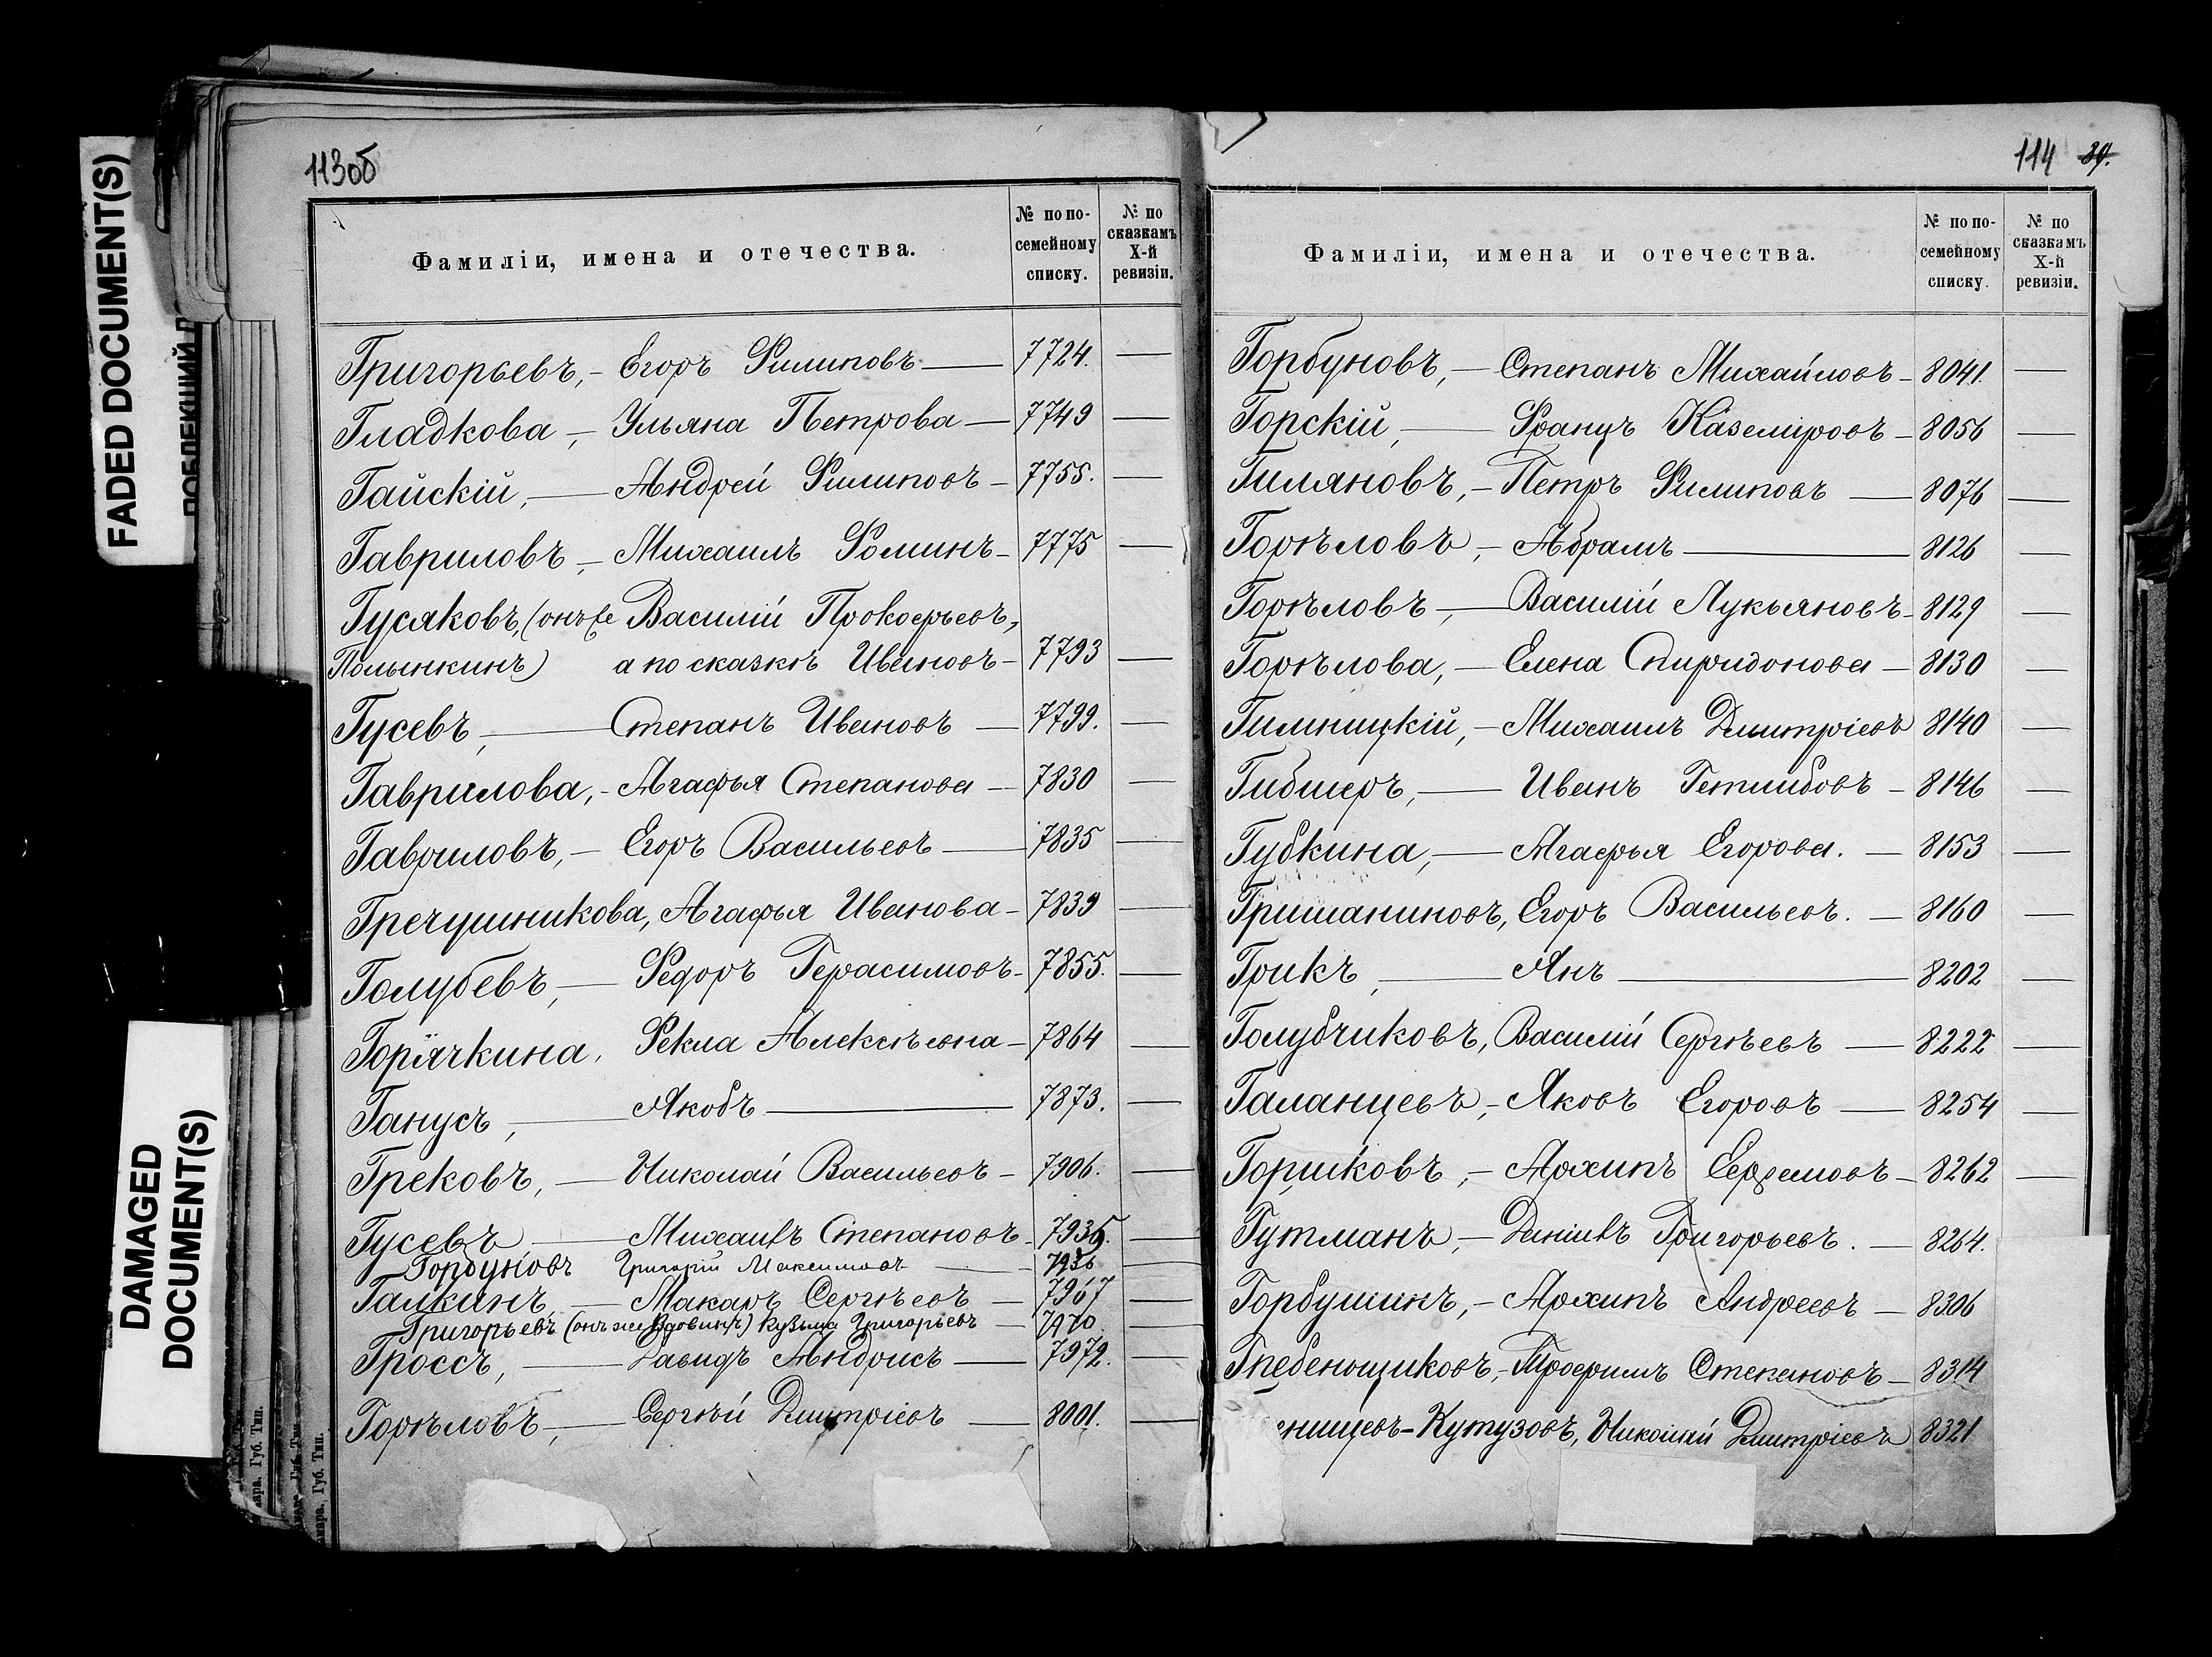 FADED DOCUMENT(S)
DAMAGED
DOCUMENT(S)
113об
Фамиліи, имена и отечества.
№ по по-
семейному
списку.
№ по
сказкамъ
X-й
ревизіи.
Григорьевъ, - Егоръ Филиповъ — 7724. —
Гладкова, - Ульяна Петрова — 7749 —
Гайскій, — Андрей Филиповъ - 7755. —
Гавриловъ, - Михаилъ Фоминъ - 7775 —
Гусяковъ, (онъ же Василій Прокофьевъ,
Полынкинъ) а по сказкѣ Ивановъ - 7793 —
Гусевъ, — Степанъ Ивановъ — 7799. —
Гаврилова, - Агафья Степанова — 7830 —
Гавриловъ, — Егоръ Васильевъ — 7835 —
Гречушникова, Агафья Иванова - 7839 —
Голубевъ, — Федоръ Герасимовъ - 7855. —
Горячкина, Фекла Алексѣевна - 7864 —
Ганусъ, — Якобъ — 7873. —
Грековъ, — Николай Васильевъ - 7906. —
Гусевъ — Михаилъ Степановъ - 7935. —
Горбуновъ Григорій Максимовъ — 7936 —
Галкинъ, — Макаръ Сергѣевъ — 7967 —
Григорьевъ (онъ же Вдовинъ) Кузьма Григорьевъ — 7970 —
Гроссъ, — Давидъ Андрисъ — 7972. —
Горѣловъ, — Сергѣй Дмитріевъ — 8001. —
114 39.
Фамиліи, имена и отечества.
№ по по-
семейному
списку.
№ по
сказкамъ
X-й
ревизіи.
Горбуновъ, — Степанъ Михайловъ - 8041. —
Горскій, — Францъ Каземіровъ - 8056 —
Гиляновъ, - Петръ Филиповъ — 8076 —
Горѣловъ, - Абрамъ — 8126 —
Горѣловъ, — Василій Лукьяновъ - 8129 —
Горѣлова, — Елена Спиридонова — 8130 —
Гилницкій, - Михаилъ Дмитріевъ 8140 —
Гибшеръ, — Иванъ Гетлибовъ - 8146 —
Губкина, — Агафья Егорова. — 8153 —
Гришаниновъ, Егоръ Васильевъ. — 8160 —
Грикъ, — Янъ — 8202 —
Голубчиковъ, Василій Сергѣевъ — 8222 —
Галанцевъ, - Яковъ Егоровъ — 8254 —
Горшковъ, - Архипъ Ефремовъ - 8262 —
Гутманъ, - Даніилъ Григорьевъ. — 8264.
Горбушинъ, - Архипъ Андреевъ — 8306
Гребенщиковъ, - Трофимъ Степановъ - 8314
нищевъ-Кутузовъ, Николай Дмитріевъ 8321
ара. Губ. Тип.
мара, Губ. Тип.